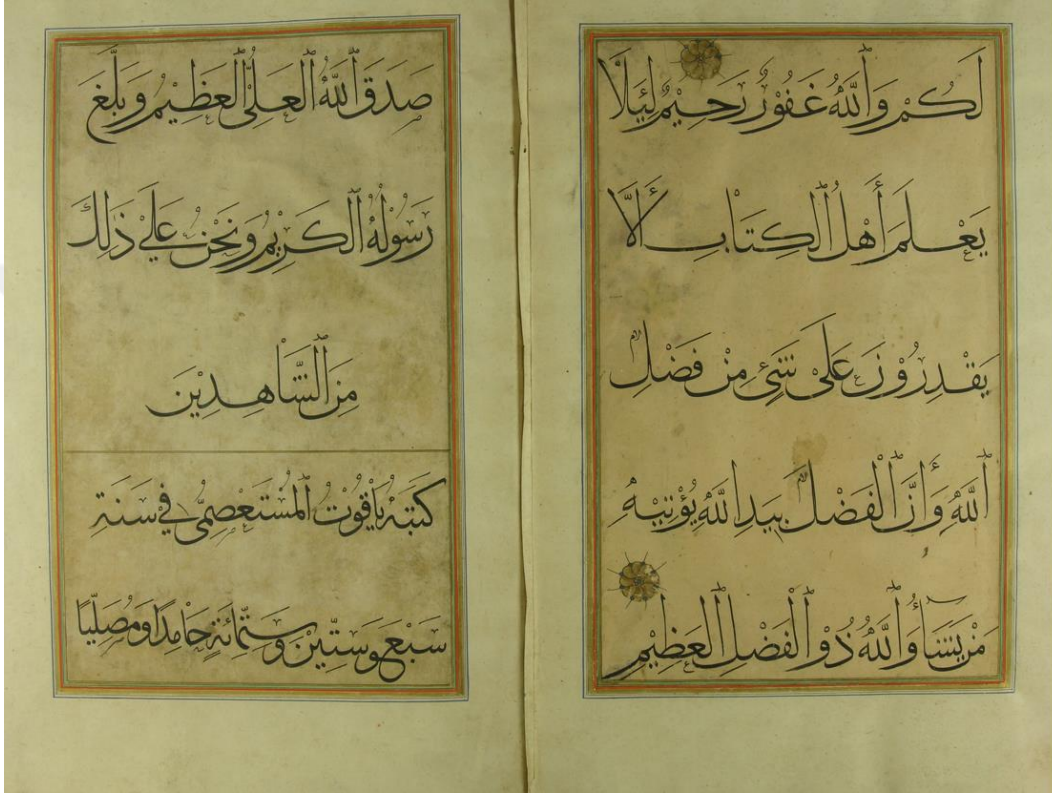 لَكُمْ وَٱللَّهُ غَفُوْرٌ رَحِيْمٌ لِئَلَّا
يَعْلَمَ أَهْلُ ٱلْكِتَاْبِ أَلَّا
يَقْدِرُوْنَ عَلَىْ شَيْءٍ مِنْ فَضْلِ
ٱللَّهِ وَأَنَّ ٱلْفَضْلَ بِيَدِ ٱللَّهِ يُؤْتِيْهِ
مَنْ يَشَآءُ وَٱللَّهُ ذُوْ ٱلْفَضْلِ ٱلْعَظِيْمِ
صَدَقَ ٱللَّهُ ٱلْعَلِيُّ ٱلْعَظِيْمُ وَبَلَّغَ
رَسُوْلُهُ ٱلْكَرِيْمُ وَنَحْنُ عَلَىْ ذَٰلِكَ
مِنَ ٱلشَّاْهِدِيْنَ
كَتَبَهُ يَاْقُوْتُ ٱلْمُسْتَعْصِمِيُّ فِيْ سَنَةِ
سَبْعٍ وَسِتِّيْنَ وَسِتِّمِائَةٍ حَاْمِدًا وَمُصَلِّيًا